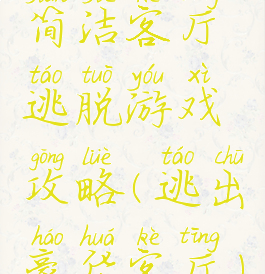 jiǎn jié kè tīng
简洁客厅
táo tuō yóu xì
逃脱游戏
gōng lüè táo chū
攻略(逃出
háo huá kè tīng
豪华客厅)